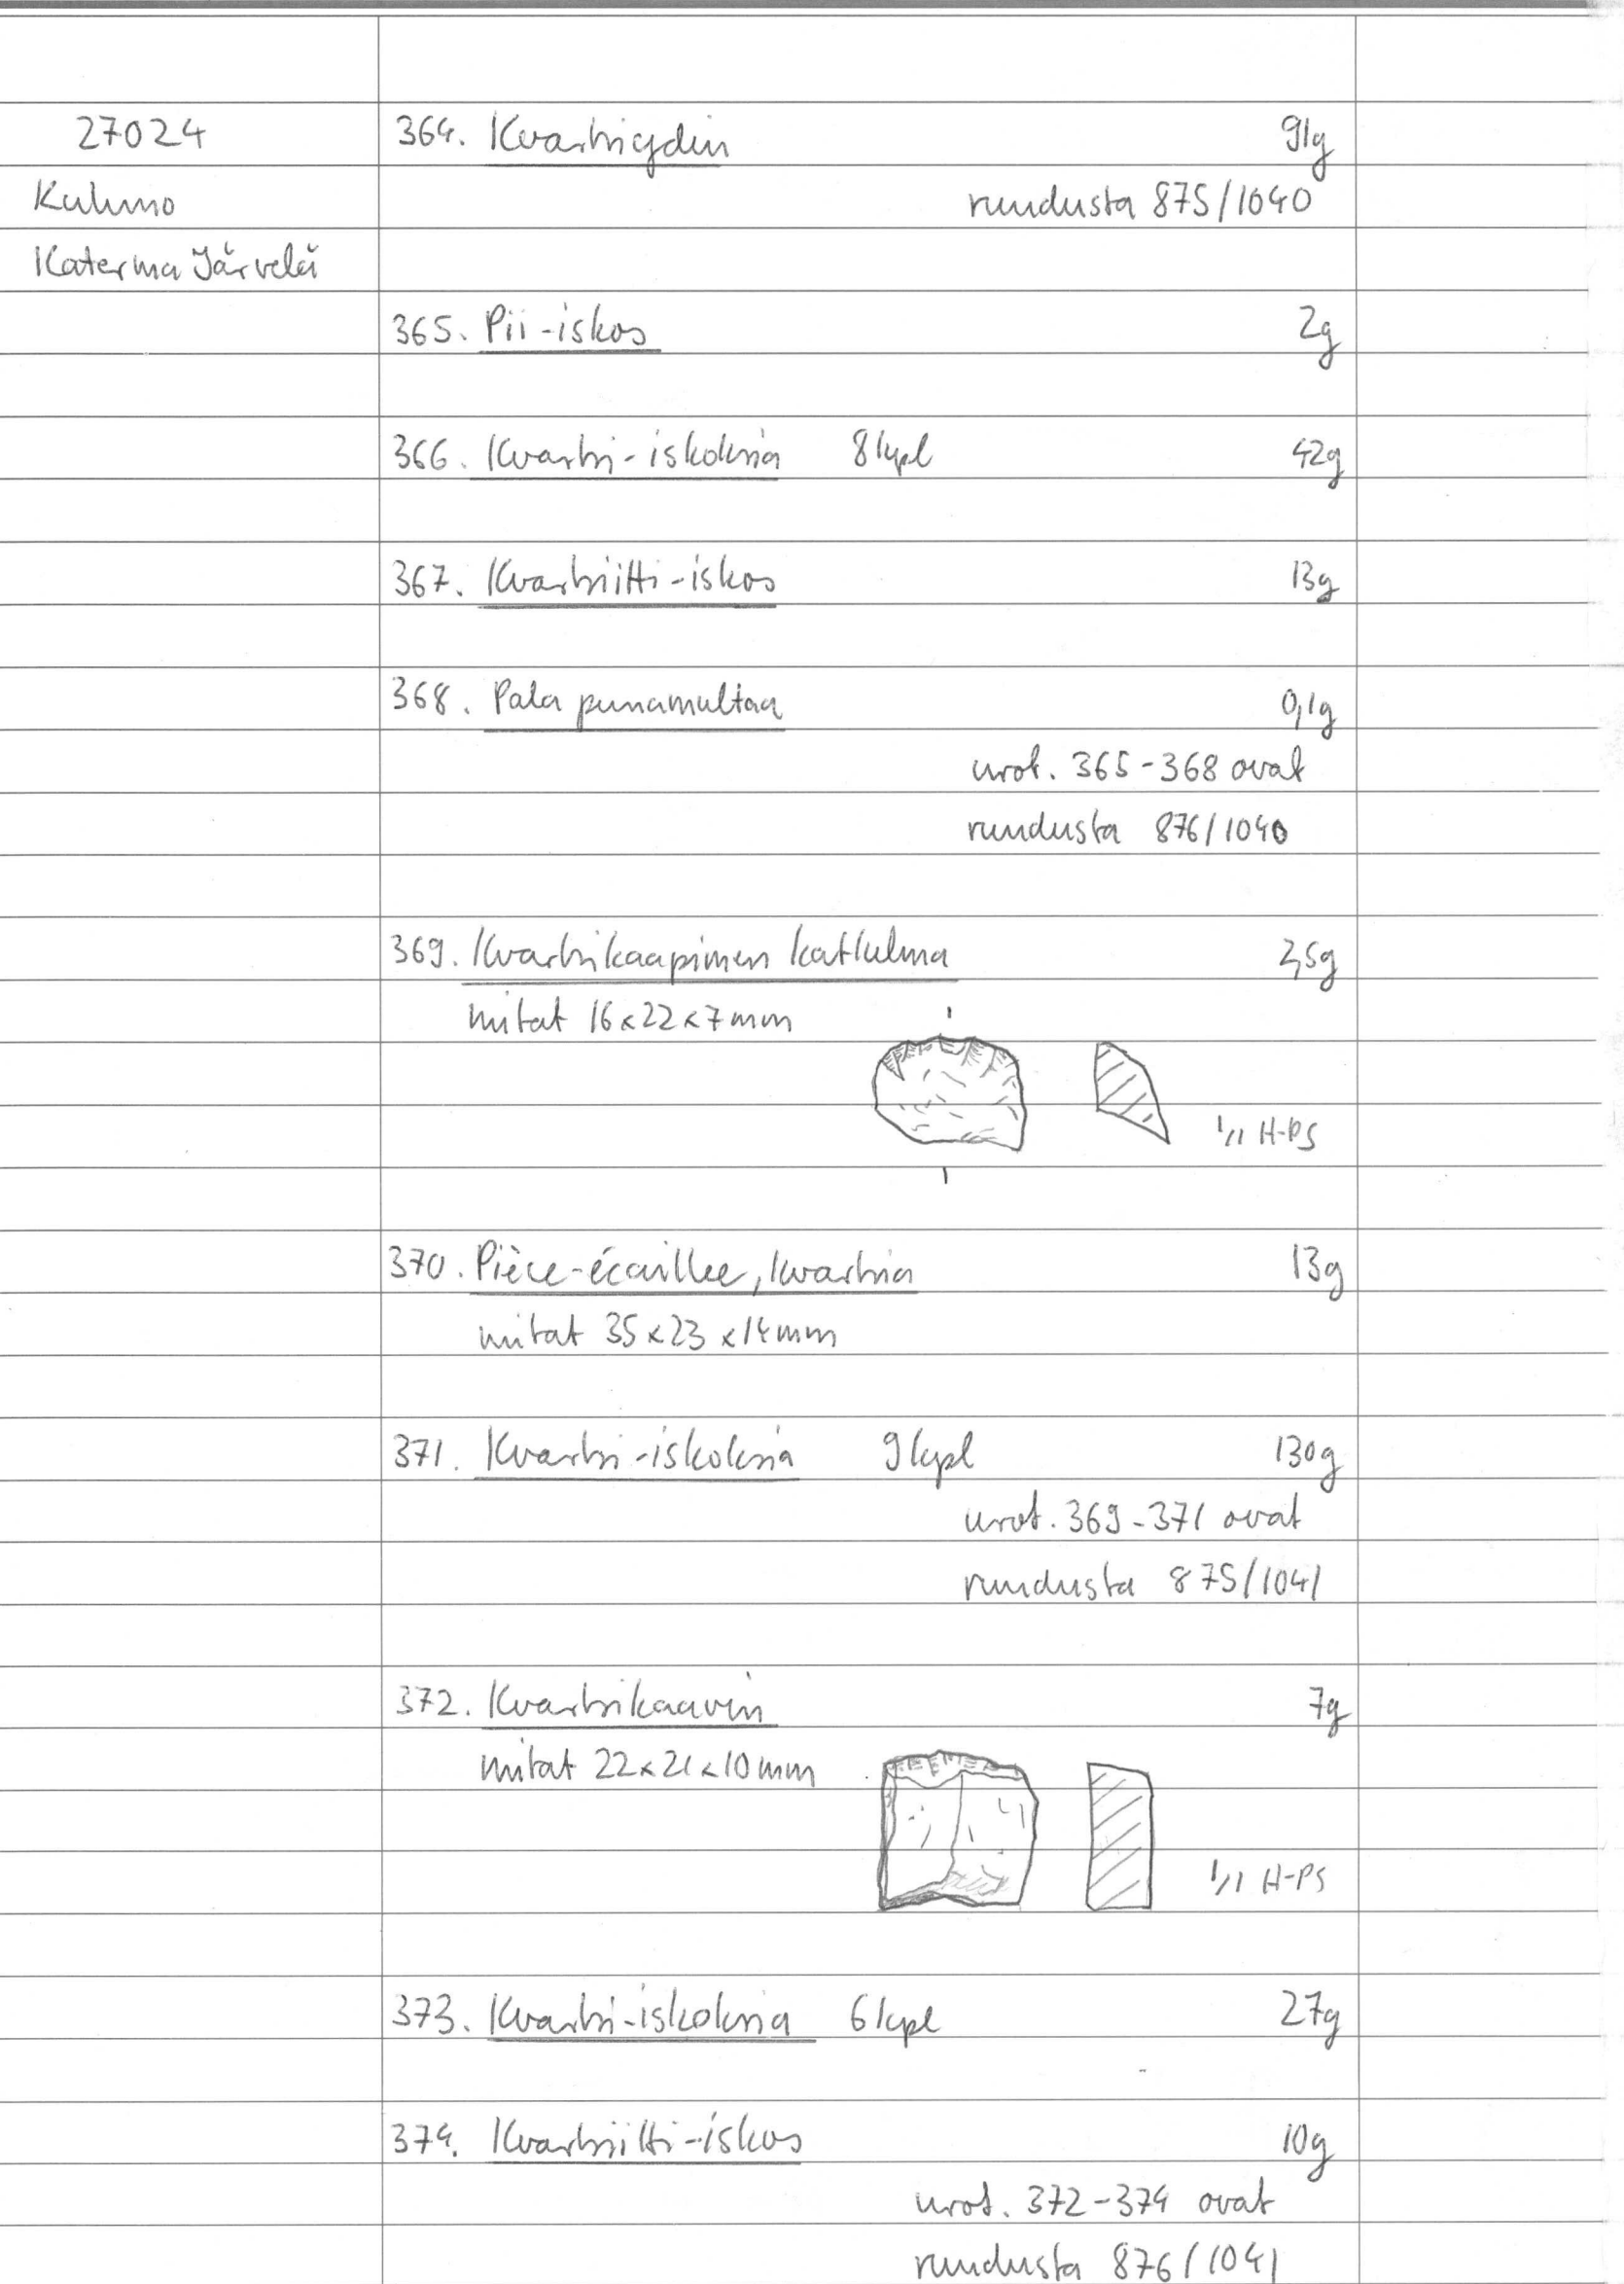 27024 364. Kvartsiydin 91g
Kuhmo ruudusta 875/1040
Katerma Järvelä
365. Pii-iskos 2g
366. Kvartsi-iskoksia 8kpl 42g
367. Kvartsiitti-iskos 13g
368. Pala punamultaa 0,1g
nrot. 365-368 ovat
ruudusta 876/1040
369. Kvartsikaapimen katkelma 2,5g
mitat 16x22x7mm
1/1 H-PS
370. Pièce-écaillee, kvartsia 13g
mitat 35x23x14mm
371. Kvartsi-iskoksia 9kpl 130g
nrot. 369-371 ovat
ruudusta 875/1041
372. Kvartsikaavin 7g
mitat 22x21x10mm
1/1 H-PS
373. Kvartsi-iskoksia 6kpl 27g
374. Kvartsiitti-iskos 10g
nrot. 372-374 ovat
ruudusta 876/1041